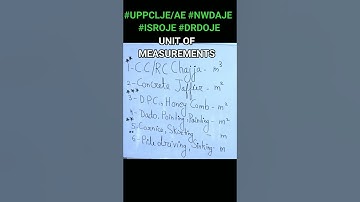 #UPPCLJE/AE #NWDAJE
#ISROJE #DRDOJE
UNIT OF
MEASUREMENTS
1- CC/RC Chajja - m³
2- Concrete Jaffur - m²
3- DPC, Honey Comb - m²
4- Dado, Pointing, Painting - m²
5- Cornice, Skirting - m
6- Pile driving, Sinking m